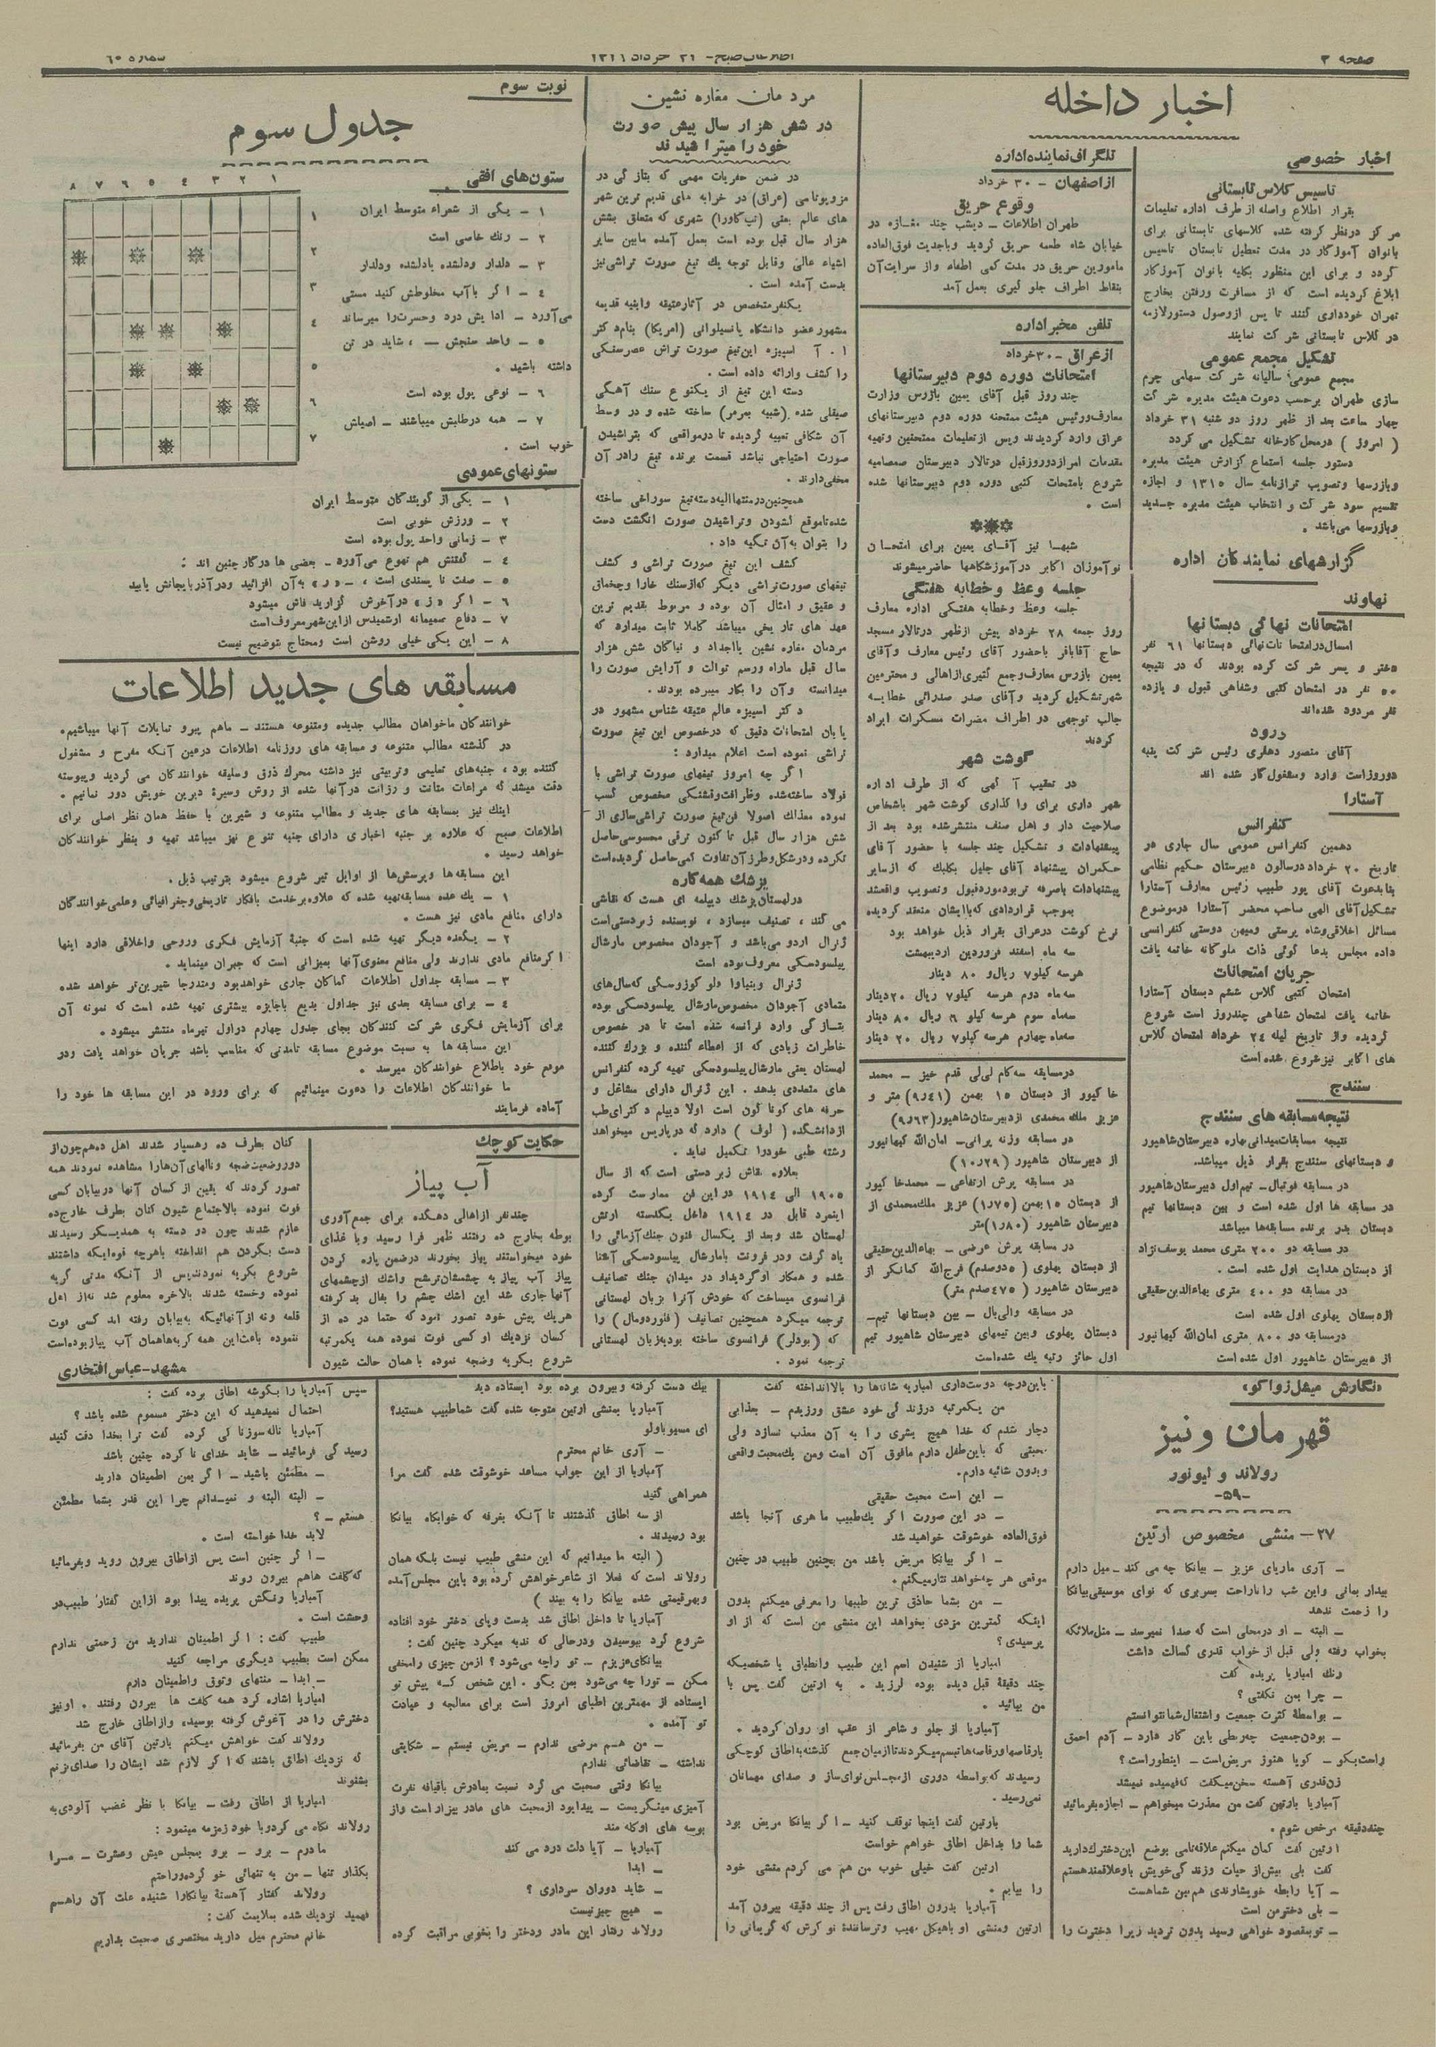 صفحه ۲
شماره ۶۰
اخبار داخله
اخبار خصوصی
تاسیس کلاس تابستانی
بقرار اطلاع واصله از طرف اداره تعلیمات
مرکز درنظر گرفته شده کلاسهای تابستانی برای
بانوان آموزگار در مدت تعطیل تابستان تاسیس
گردد و برای این منظور بکلیه بانوان آموزگار
ابلاغ گردیده است که از مسافرت ورفتن بخارج
تهران خودداری کنند تا پس ازوصول دستورلازمه
در کلاس تابستانی شرکت نمایند
تشکیل مجمع عمومی
مجمع عمومی سالیانه شرکت سهامی چرم
سازی طهران برحسب دعوت هیئت مدیره شرکت
چهار ساعت بعد از ظهر روز دو شنبه ۳۱ خرداد
( امروز ) درمحل کارخانه تشکیل می گردد
دستور جلسه استماع گزارش هیئت مدیره
وبازرسها وتصویب ترازنامه سال ۱۳۱۵ و اجازه
تقسیم سود شرکت و انتخاب هیئت مدیره جدید
وبازرسها می‌باشد .
گزارشهای نمایندگان اداره
نهاوند
امتحانات نهائی دبستانها
امسال درامتحانات نهائی دبستانها ۶۱ نفر
دختر و پسر شرکت کرده بودند که در نتیجه
۵۰ نفر در امتحان کتبی وشفاهی قبول و یازده
نفر مردود شده‌اند
ورود
آقای منصور دهلری رئیس شرکت پنبه
دوروزاست وارد ومشغول کار شده اند
آستارا
کنفرانس
دهمین کنفرانس عمومی سال جاری در
تاریخ ۲۰ خرداد درسالون دبیرستان حکیم نظامی
بنابدعوت آقای پور طبیب رئیس معارف آستارا
تشکیل آقای الهی صاحب محضر آستارا درموضوع
مسائل اخلاقی وشاه پرستی ومیهن دوستی کنفرانسی
داده مجلس بدعا گوئی ذات ملوکانه خاتمه یافت
جریان امتحانات
امتحان کتبی کلاس ششم دبستان آستارا
خاتمه یافت امتحان شفاهی چندروز است شروع
گردیده واز تاریخ لیله ۲۴ خرداد امتحان کلاس
های اکابر نیز شروع شده است
سنندج
نتیجه مسابقه های سنندج
نتیجه مسابقات میدانی بهاره دبیرستان شاهپور
و دبستانهای سنندج بقرار ذیل میباشد.
در مسابقه فوتبال- تیم اول دبیرستان شاهپور
در مسابقه ها اول شده است و بین دبستانها تیم
دبستان بدر برنده مسابقه‌ها میباشد
در مسابقه دو ۲۰۰ متری محمد یوسف‌نژاد
از دبستان هدایت اول شده است .
در مسابقه دو ۴۰۰ متری بهاءالدین‌حقیقی
ازدبستان پهلوی اول شده است
درمسابقه دو ۸۰۰ متری امان‌الله کیهانپور
از دبیرستان شاهپور اول شده است
تلگراف نماینده اداره
ازاصفهان - ۳۰ خرداد
وقوع حریق
طهران اطلاعات - دیشب چند مغازه در
خیابان شاه طعمه حریق گردید وباجدیت فوق‌العاده
مامورین حریق در مدت کمی اطفاء واز سرایت‌آن
بنقاط اطراف جلو گیری بعمل آمد
تلفن مخبر اداره
ازعراق -۳۰خرداد
امتحانات دوره دوم دبیرستانها
چند روز قبل آقای یمین بازرس وزارت
معارف‌ورئیس هیئت ممتحنه دوره دوم دبیرستانهای
عراق وارد گردیدند وپس ازتعلیمات ممتحنین وتهیه
مقدمات امرازدوروزقبل درتالار دبیرستان صمصامیه
شروع بامتحانات کتبی دوره دوم دبیرستانها شده
است .
شبها نیز آقای یمین برای امتحان
نوآموزان اکابر درآموزشگاهها حاضرمیشوند
جلسه وعظ وخطابه هفتگی
جلسه وعظ وخطابه هفتگی اداره معارف
روز جمعه ۲۸ خرداد پیش ازظهر درتالار مسجد
حاج آقابافر باحضور آقای رئیس معارف وآقای
یمین بازرس معارف‌وجمع کثیری‌ازاهالی و محترمین
شهر تشکیل گردید وآقای صدر صدرائی خطابه
جالب توجهی در اطراف مضرات مسکرات ایراد
کردند
گوشت شهر
در تعقیب آگهی که از طرف اداره
شهرداری برای واگذاری گوشت شهر باشخاص
صلاحیت دار و اهل صنف منتشرشده بود بعد از
پیشنهادات و تشکیل چند جلسه با حضور آقای
حکمران پیشنهاد آقای جلیل بکلیک که ازسایر
پیشنهادات باصرفه تربود،موردقبول وتصویب واقعشد
بموجب قراردادی که باایشان منعقد گردیده
نرخ گوشت درعراق بقرار ذیل خواهد بود
سه ماه اسفند فروردین اردیبهشت
هرسه کیلو۷ ریال‌و ۸۰ دینار
سه‌ماه دوم هرسه کیلو۷ ریال ۲۰دینار
سه‌ماه سوم هرسه کیلو ۶ ریال ۸۰ دینار
سه‌ماه چهارم هرسه کیلو۷ ریال ۲۰ دینار
درمسابقه سه‌گام لی‌لی قدم خیز - محمد
خاکپور از دبستان ۱۵ بهمن (۹ر۴۱) متر و
عزیز ملک محمدی ازدبیرستان‌شاهپور (۹ر۶۳)
در مسابقه وزنه پرانی- امان‌الله کیهانپور
از دبیرستان شاهپور (۱۰ر۲۹)
در مسابقه پرش ارتفاعی - محمدخاکپور
از دبستان ۱۵بهمن (۱ر۷۵) عزیز ملک‌محمدی از
دبیرستان شاهپور (۱ر۸۰)متر
در مسابقه پرش عرضی - بهاءالدین‌حقیقی
از دبستان پهلوی (۵دوصدم) فرج‌الله کمانگر از
دبیرستان شاهپور (۴۷۵صدم متر)
در مسابقه والی‌بال - بین دبستانها تیم-
دبستان پهلوی وبین تیمهای دبیرستان شاهپور تیم
اول حائز رتبه یک شده‌است
مردمان مغاره نشین
در شش هزار سال پیش صورت
خود را میتراشیدند
در ضمن حفریات مهمی که بتازگی در
مزوپوتامی (عراق) در خرابه های قدیم ترین شهر
های عالم یعنی (تپ‌گاورا) شهری که متعلق بشش
هزار سال قبل بوده است بعمل آمده مابین سایر
اشیاء عالی وقابل توجه یک تیغ صورت تراشی نیز
بدست آمده است .
یکنفرمتخصص در آثارعتیقه وابنیه قدیمه
مشهورعضو دانشگاه پانسیلوانی (امریکا) بنام‌دکتر
۱ . آ اسپیزه این‌تیغ صورت تراش عصرسنگی
را کشف وارائه داده است .
دسته این تیغ از یکنوع سنک آهگی
صیقلی شده (شبیه بمرمر) ساخته شده و در وسط
آن شکافی تعبیه گردیده تا درمواقعی که بتراشیدن
صورت احتیاجی نباشد قسمت برنده تیغ رادر آن
مخفی‌دارند .
همچنین‌درمنتهاالیه دسته تیغ سوراخی ساخته
شده‌تاموقع لغودن وتراشیدن صورت انگشت دست
را بتوان به‌آن تکیه داد .
کشف این تیغ صورت تراشی و کشف
تیغهای صورت‌تراشی دیگر که‌ازسنک خارا وچخماق
و عقیق و امثال آن بوده و مربوط بقدیم ترین
عهد های تاریخی میباشد کاملا ثابت میدارد که
مردمان مغاره نشین یااجداد و نیاکان شش هزار
سال قبل ماراه ورسم توالت و آرایش صورت را
میدانسته وآن را بکار میبرده بودند .
دکتر اسپیزه عالم عتیقه شناس مشهور در
پایان امتحانات دقیق که درخصوص این تیغ صورت
تراشی نموده است اعلام میدارد :
اگر چه امروز تیغهای صورت تراشی با
فولاد ساخته‌شده وظرافت‌وقشنگی مخصوص کسب
نموده معذلک اصولا فن‌تیغ صورت تراشی‌سازی از
شش هزار سال قبل تا کنون ترقی محسوسی‌حاصل
نکرده ودرشکل‌وطرز آن تفاوت کمی‌حاصل گردیده‌است
پزشک همه کاره
درلهستان‌پزشک دیپلمه ای هست که نقاشی
می کند ، تصنیف میسازد ، نویسنده زبردستی‌است
ژنرال اردو می‌باشد و آجودان مخصوص مارشال
پیلسودسکی معروف بوده است
ژنرال وینیاوا دلو گوژوسکی که‌سال‌های
متمادی آجودان مخصوص‌مارشال پیلسودسکی بوده
بتازگی وارد فرانسه شده است تا در خصوص
خاطرات زیادی که از اعطاء کننده و بزرک کننده
لهستان یعنی مارشال پیلسودسکی تهیه کرده کنفرانس
های متعددی بدهد . این ژنرال دارای مشاغل و
حرفه های گوناگون است اولا دیپلم دکترای‌طب
ازدانشگده ( لوف ) دارد که درپاریس میخواهد
رشته طبی خودرا تکمیل نماید .
بعلاوه نقاش زبر دستی است که از سال
۱۹۰۵ الی ۱۹۱۴ در این فن ممارست کرده
اینمرد قابل در ۱۹۱۴ داخل یکدسته ارتش
لهستان شد وبعد از یکسال فنون جنک‌آزمائی را
یاد گرفت ودر فرونت بامارشال پیلسودسکی آشنا
شده و همکار او گردیداو در میدان جنک تصانیف
فرانسوی میساخت که خودش آنرا بزبان لهستانی
ترجمه میکرد همچنین تصانیف (فلوردومال) را
که (بودلر) فرانسوی ساخته بودبه‌زبان لهستانی
ترجمه نمود .
نوبت سوم
جدول سوم
ستون‌های افقی .
۱ ۲ ۳ ۴ ۵ ۶ ۷ ۸
۱
۲
۳
۴
۵
۶
۷
۱ - یکی از شعراء متوسط ایران
۲ - رنک خاصی است
۳ - دلدار ودلشده بادلشده ودلدار
۴ - اگر باآب مخلوطش کنید مستی
می‌آورد - ادایش درد وحسرت‌را میرساند
۵ - واحد سنجش - ، شاید در تن
داشته باشید .
۶ - نوعی پول بوده است
۷ - همه درطلبش میباشند - اصیلش
خوب است .
ستونهای عمودی
۱ - یکی از گویندگان متوسط ایران
۲ - ورزش خوبی است
۳ - زمانی واحد پول بوده است
۴ - گفتنش هم تهوع می‌آورد - بعضی ها درکار چنین اند :
۵ - صفت ناپسندی است ، «ر» به‌آن افزائید ودرآذربایجانش بیابید
۶ - اگر «ز» درآخرش گزارید فاش میشود
۷ - دفاع صمیمانه ارشمیدس ازاین‌شهر معروف است
۸ - این یکی خیلی روشن است ومحتاج بتوضیح نیست
مسابقه های جدید اطلاعات
خوانندگان ماخواهان مطالب جدیده ومتنوعه هستند - ماهم پیرو تمایلات آنها میباشیم.
در گذشته مطالب متنوعه و مسابقه های روزنامه اطلاعات درعین آنکه مفرح و مشغول
کننده بود ، جنبه‌های تعلیمی وتربیتی نیز داشته محرک ذوق وسلیقه خوانندگان می گردید وپیوسته
دقت میشد که مراعات متانت و رزانت درآنها شده از روش وسیرهٔ دیرین خویش دور نمانیم .
اینک نیز بمسابقه های جدید و مطالب متنوعه و شیرین با حفظ همان نظر اصلی برای
اطلاعات صبح که علاوه بر جنبه اخباری دارای جنبه تنوع نیز میباشد تهیه و بنظر خوانندگان
خواهد رسید .
این مسابقه‌ها وپرسش‌ها از اوایل تیر شروع میشود بترتیب ذیل .
۱ - یک عده مسابقه‌تهیه شده که علاوه‌برخدمت بافکار تاریخی‌وجغرافیائی وعلمی‌خوانندگان
دارای منافع مادی نیز هست .
۲ - یکعده دیگر تهیه شده است که جنبهٔ آزمایش فکری وروحی واخلاقی دارد اینها
اگرمنافع مادی ندارند ولی منافع معنوی‌آنها بمیزانی است که جبران مینماید .
۳ - مسابقه جداول اطلاعات کماکان جاری خواهدبود ومتدرجا شیرین‌تر خواهد شده
۴ - برای مسابقه بعدی نیز جداول بدیع باجایزه بیشتری تهیه شده است که نمونه آن
برای آزمایش فکری شرکت کنندگان بجای جدول چهارم دراول تیرماه منتشر میشود .
این مسابقه ها به نسبت موضوع مسابقه تامدتی که مناسب باشد جریان خواهد یافت ودر
موقع خود باطلاع خوانندگان میرسد .
ما خوانندگان اطلاعات را دعوت مینمائیم که برای ورود در این مسابقه ها خود را
آماده فرمایند
حکایت کوچک
آب پیاز
چندنفر ازاهالی دهکده برای جمع‌آوری
بوطه بخارج ده رفتند ظهر فرا رسید وبا غذای
خود میخواستند پیاز بخورند درضمن پاره کردن
پیاز آب پیاز به چشمشان‌ترشح واشک ازچشمهای
آنها جاری شد این اشک چشم را بفال بد گرفته
هریک پیش خود تصور نمود که حتما در ده از
کسان نزدیک او کسی فوت نموده همه یکمرتبه
شروع بگریه وضجه نموده باهمان حالت شیون
کنان بطرف ده رهسپار شدند اهل ده‌هم‌چون‌از
دوروضعیت‌ضجه وناله‌ای آن‌هارا مشاهده نمودند همه
تصور کردند که یقین از کسان آنها دربیابان کسی
فوت نموده بالاجتماع شیون کنان بطرف خارج‌ده
عازم شدند چون دو دسته به همدیگر رسیدند
دست بگردن هم انداخته باهرچه قوه‌ایکه داشتند
شروع بگریه نمودندپس از آنکه مدتی گریه
نموده وخسته شدند بالاخره معلوم شد نه‌از اهل
قلعه ونه ازآنهائیکه به‌بیابان رفته اند کسی فوت
ننموده باعث‌این همه گریه‌هاهمان آب پیازبوده‌است
مشهد-عباس افتخاری
«نگارش میشل زواکو»
قهرمان ونیز
رولاند و لیونور
-۵۹-
۲۷- منشی مخصوص ارتین
- آری ماریای عزیز - بیانکا چه می کند - میل دارم
بیدار بمانی واین شب را ناراحت بسربری که نوای موسیقی‌بیانکا
را زحمت ندهد
- البته - او درمحلی است که صدا نمیرسد - مثل‌ملائکه
بخواب رفته ولی قبل از خواب قدری کسالت داشت
رنک امباریا پریده گفت
- چرا بمن نگفتی ؟
- بواسطهٔ کثرت جمعیت واشتغال‌شمانتوانستم
- بودن‌جمعیت چه‌ربطی باین کار دارد - آدم احمق
راحت‌بگو - گویا هنوز مریض‌است - اینطوراست؟
زن‌قدری آهسته سخن‌میگفت که فهمیده نمیشد
آمباریا بارتین گفت من معذرت میخواهم - اجازه بفرمائید
چنددقیقه مرخص شوم .
ارتین گفت گمان میکنم علاقه‌تامی بوضع این‌دخترک‌دارید
گفت بلی بیش‌از حیات وزندگی‌خویش باوعلاقمندهستم
- آیا رابطه خویشاوندی هم‌بین شماهست
- بلی دخترمن است
- توبمقصود خواهی رسید بدون تردید زیرا دخترت را
باین‌درجه دوست‌داری امباریه شانه‌ها را بالاانداخته گفت
من یکمرتبه درزندگی خود عشق ورزیدم - بعذابی
دچار شدم که خدا هیچ بشری را به آن معذب نسازد ولی
محبتی که باین‌طفل دارم مافوق آن است ومن یک‌محبت واقعی
وبدون شائبه دارم.
- این است محبت حقیقی
- در این صورت اگر یک‌طبیب ماهری آنجا باشد
فوق‌العاده خوشوقت خواهید شد
- اگر بیانکا مریض باشد من بچنین طبیب در چنین
موقعی هر چه‌خواهد نثارمیکنم.
- من بشما حاذق ترین طبیبها را معرفی میکنم بدون
اینکه کمترین مزدی بخواهد این منشی من است که از او
پرسیدی؟
امباریا از شنیدن اسم این طبیب وانطباق با شخصیکه
چند دقیقهٔ قبل دیده بوده لرزید . به ارتین گفت پس با
من بیائید .
آمباریا از جلو و شاعر از عقب او روان گردید .
بارقاصها ورقاصه‌هاتبسم میکردندتاازمیان‌جمع گذشته به‌اطاق کوچکی
رسیدند که بواسطه دوری ازمجلس نوای‌ساز و صدای مهمانان
نمی‌رسید .
بارتین گفت اینجا توقف کنید - اگر بیانکا مریض بود
شما را بداخل اطاق خواهم خواست
ارتین گفت خیلی خوب من هم می گردم منشی خود
را بیابم .
آمباریا بدرون اطاق رفت پس از چند دقیقه بیرون آمد
ارتین ومنشی او باهیکل مهیب وترسانندهٔ نوکرش که گریمانی را
بیک دست گرفته وبیرون برده بود ایستاده دید
آمباریا بمنشی ارتین متوجه شده گفت شماطبیب هستید؟
ای مسیوباولو
- آری خانم محترم
آمباریا از این جواب مساعد خوشوقت شده گفت مرا
همراهی کنید
از سه اطاق گذشتند تا آنکه بغرفه که خوابگاه بیانکا
بود رسیدند .
( البته ما میدانیم که این منشی طبیب نیست بلکه همان
رولاند است که فعلا از شاعرخواهش کرده بود باین مجلس‌آمده
وبهرقیمتی شده بیانکا را به بیند )
آمباریا تا داخل اطاق شد بدست وپای دختر خود افتاده
شروع کرد ببوسیدن ودرحالی که ندبه میکرد چنین گفت :
بیانکای‌عزیزم - تو راچه می‌شود ؟ ازمن چیزی رامخفی
مکن - تورا چه می‌شود بمن بگو . این شخص که پیش تو
ایستاده از مهمترین اطبای امروز است برای معالجه و عیادت
تو آمده .
- من هیچ مرضی ندارم - مریض نیستم - شکایتی
نداشته - تقاضائی ندارم
بیانکا وقتی صحبت می کرد نسبت بمادرش باقیافه نفرت
آمیزی مینگریست - پیدابود ازمحبت های مادر بیزار است واز
بوسه های اوگله مند
آمباریا - آیا دلت درد می کند
- ابدا
- شاید دوران سرداری ؟
- هیچ چیزنیست
رولاند رفتار این مادر ودختر را بخوبی مراقبت کرده
سپس آمباریا را بگوشه اطاق برده گفت :
احتمال نمیدهید که این دختر مسموم شده باشد ؟
آمباریا ناله‌سوزناکی کرده گفت ترا بخدا دقت کنید
رسیدگی فرمائید - شاید خدای نا کرده چنین باشد
- مطمئن باشید - اگر بمن اطمینان دارید
- البته البته و نمیدانم چرا این قدر بشما مطمئن
هستم - ؟
لابد خدا خواسته است .
- اگر چنین است پس ازاطاق بیرون روید وبفرمائید
که‌کلفت هاهم بیرون روند
آمباریا رنگش پریده پیدا بود ازاین گفتار طبیب‌در
وحشت است .
طبیب گفت : اگر اطمینان ندارید من زحمتی ندارم
ممکن است بطبیب دیگری مراجعه کنید
- ابدا - منتهای وثوق واطمینان دارم
امباریا اشاره کرد همه کلفت ها بیرون رفتند . اونیز
دخترش را در آغوش گرفته بوسید، وازاطاق خارج شد
رولاند گفت خواهش میکنم بارتین آقای من بفرمائید
که نزدیک اطاق باشند که‌اگر لازم شد ایشان را صدای‌بزنم
بشنوند
امباریا از اطاق رفت - بیانکا با نظر غضب آلودی‌به
رولاند نگاه می کردوبا خود زمزمه مینمود :
مادرم - برو - برو بمجلس عیش وعشرت - مرا
بگذار تنها - من به تنهائی خو کرده‌وراحتم
رولاند گفتار آهستهٔ بیانکارا شنیده علت آن راهسم
فهمید نزدیک شده بملایمت گفت :
خانم محترم میل دارید مختصری صحبت بداریم